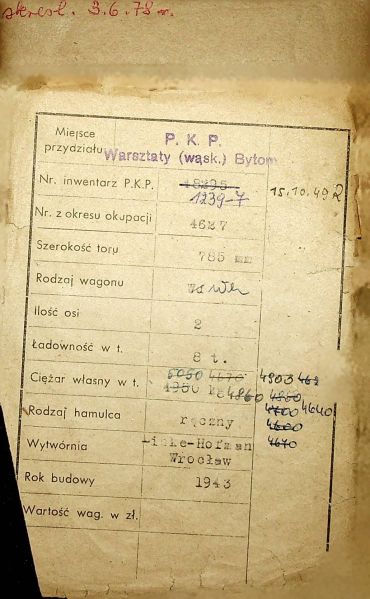 skreśl. 3.6.78 r.
Miejsce przydziału P. K. P.
Warsztaty (wąsk.) Bytom
Nr. inwentarz P.K.P. 18295
1239-7 15.10.49
Nr. z okresu okupacji 4627
Szerokość toru 785 mm
Rodzaj wagonu
Ilość osi 2
Ładowność w t. 8 t.
Ciężar własny w t. 5050 4670 4903
4860 4850
Rodzaj hamulca ręczny 4700 4640
4600
Wytwórnia -inke-Hofman 4670
Wrocław
Rok budowy 1943
Wartość wag. w zł.